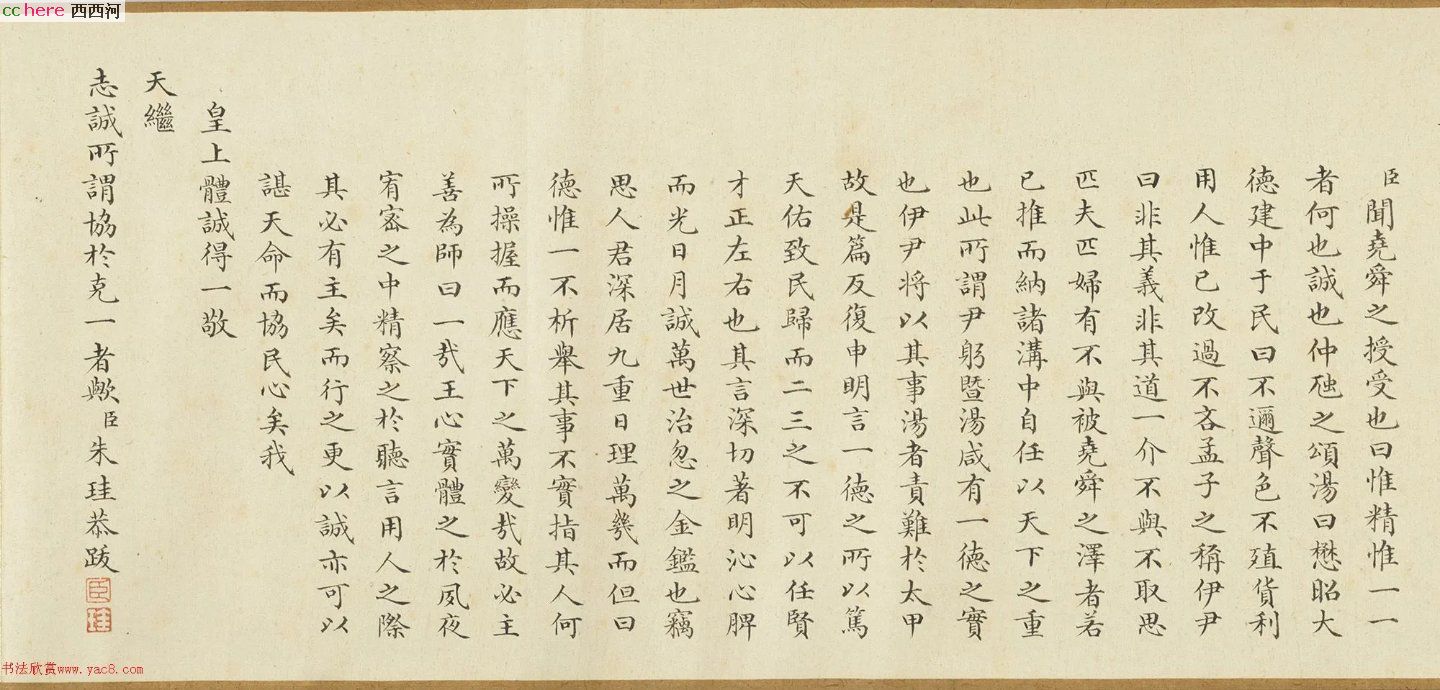 cchere 西西河
臣聞堯舜之授受也曰惟精惟一一
者何也誠也仲虺之頌湯曰懋昭大
德建中于民曰不邇聲色不殖貨利
用人惟已改過不吝孟子之稱伊尹
曰非其義非其道一介不與不取思
匹夫匹婦有不與被堯舜之澤者若
已推而納諸溝中自任以天下之重
也此所謂尹躬暨湯咸有一德之實
也伊尹将以其事湯者責難於太甲
故是篇反復申明言一德之所以篤
天佑致民歸而二三之不可以任賢
才正左右也其言深切著明沁心脾
而光日月誠萬世治忽之金鑑也竊
思人君深居九重日理萬幾而但曰
德惟一不析舉其事不實指其人何
所操握而應天下之萬變哉故必主
善為師曰一哉王心實體之於夙夜
宥密之中精察之於聽言用人之際
其必有主矣而行之更以誠亦可以
諶天命而協民心矣我
皇上體誠得一敬
天繼
志誠所謂協於克一者歟臣朱珪恭跋
臣
珪
书法欣赏www.yac8.com